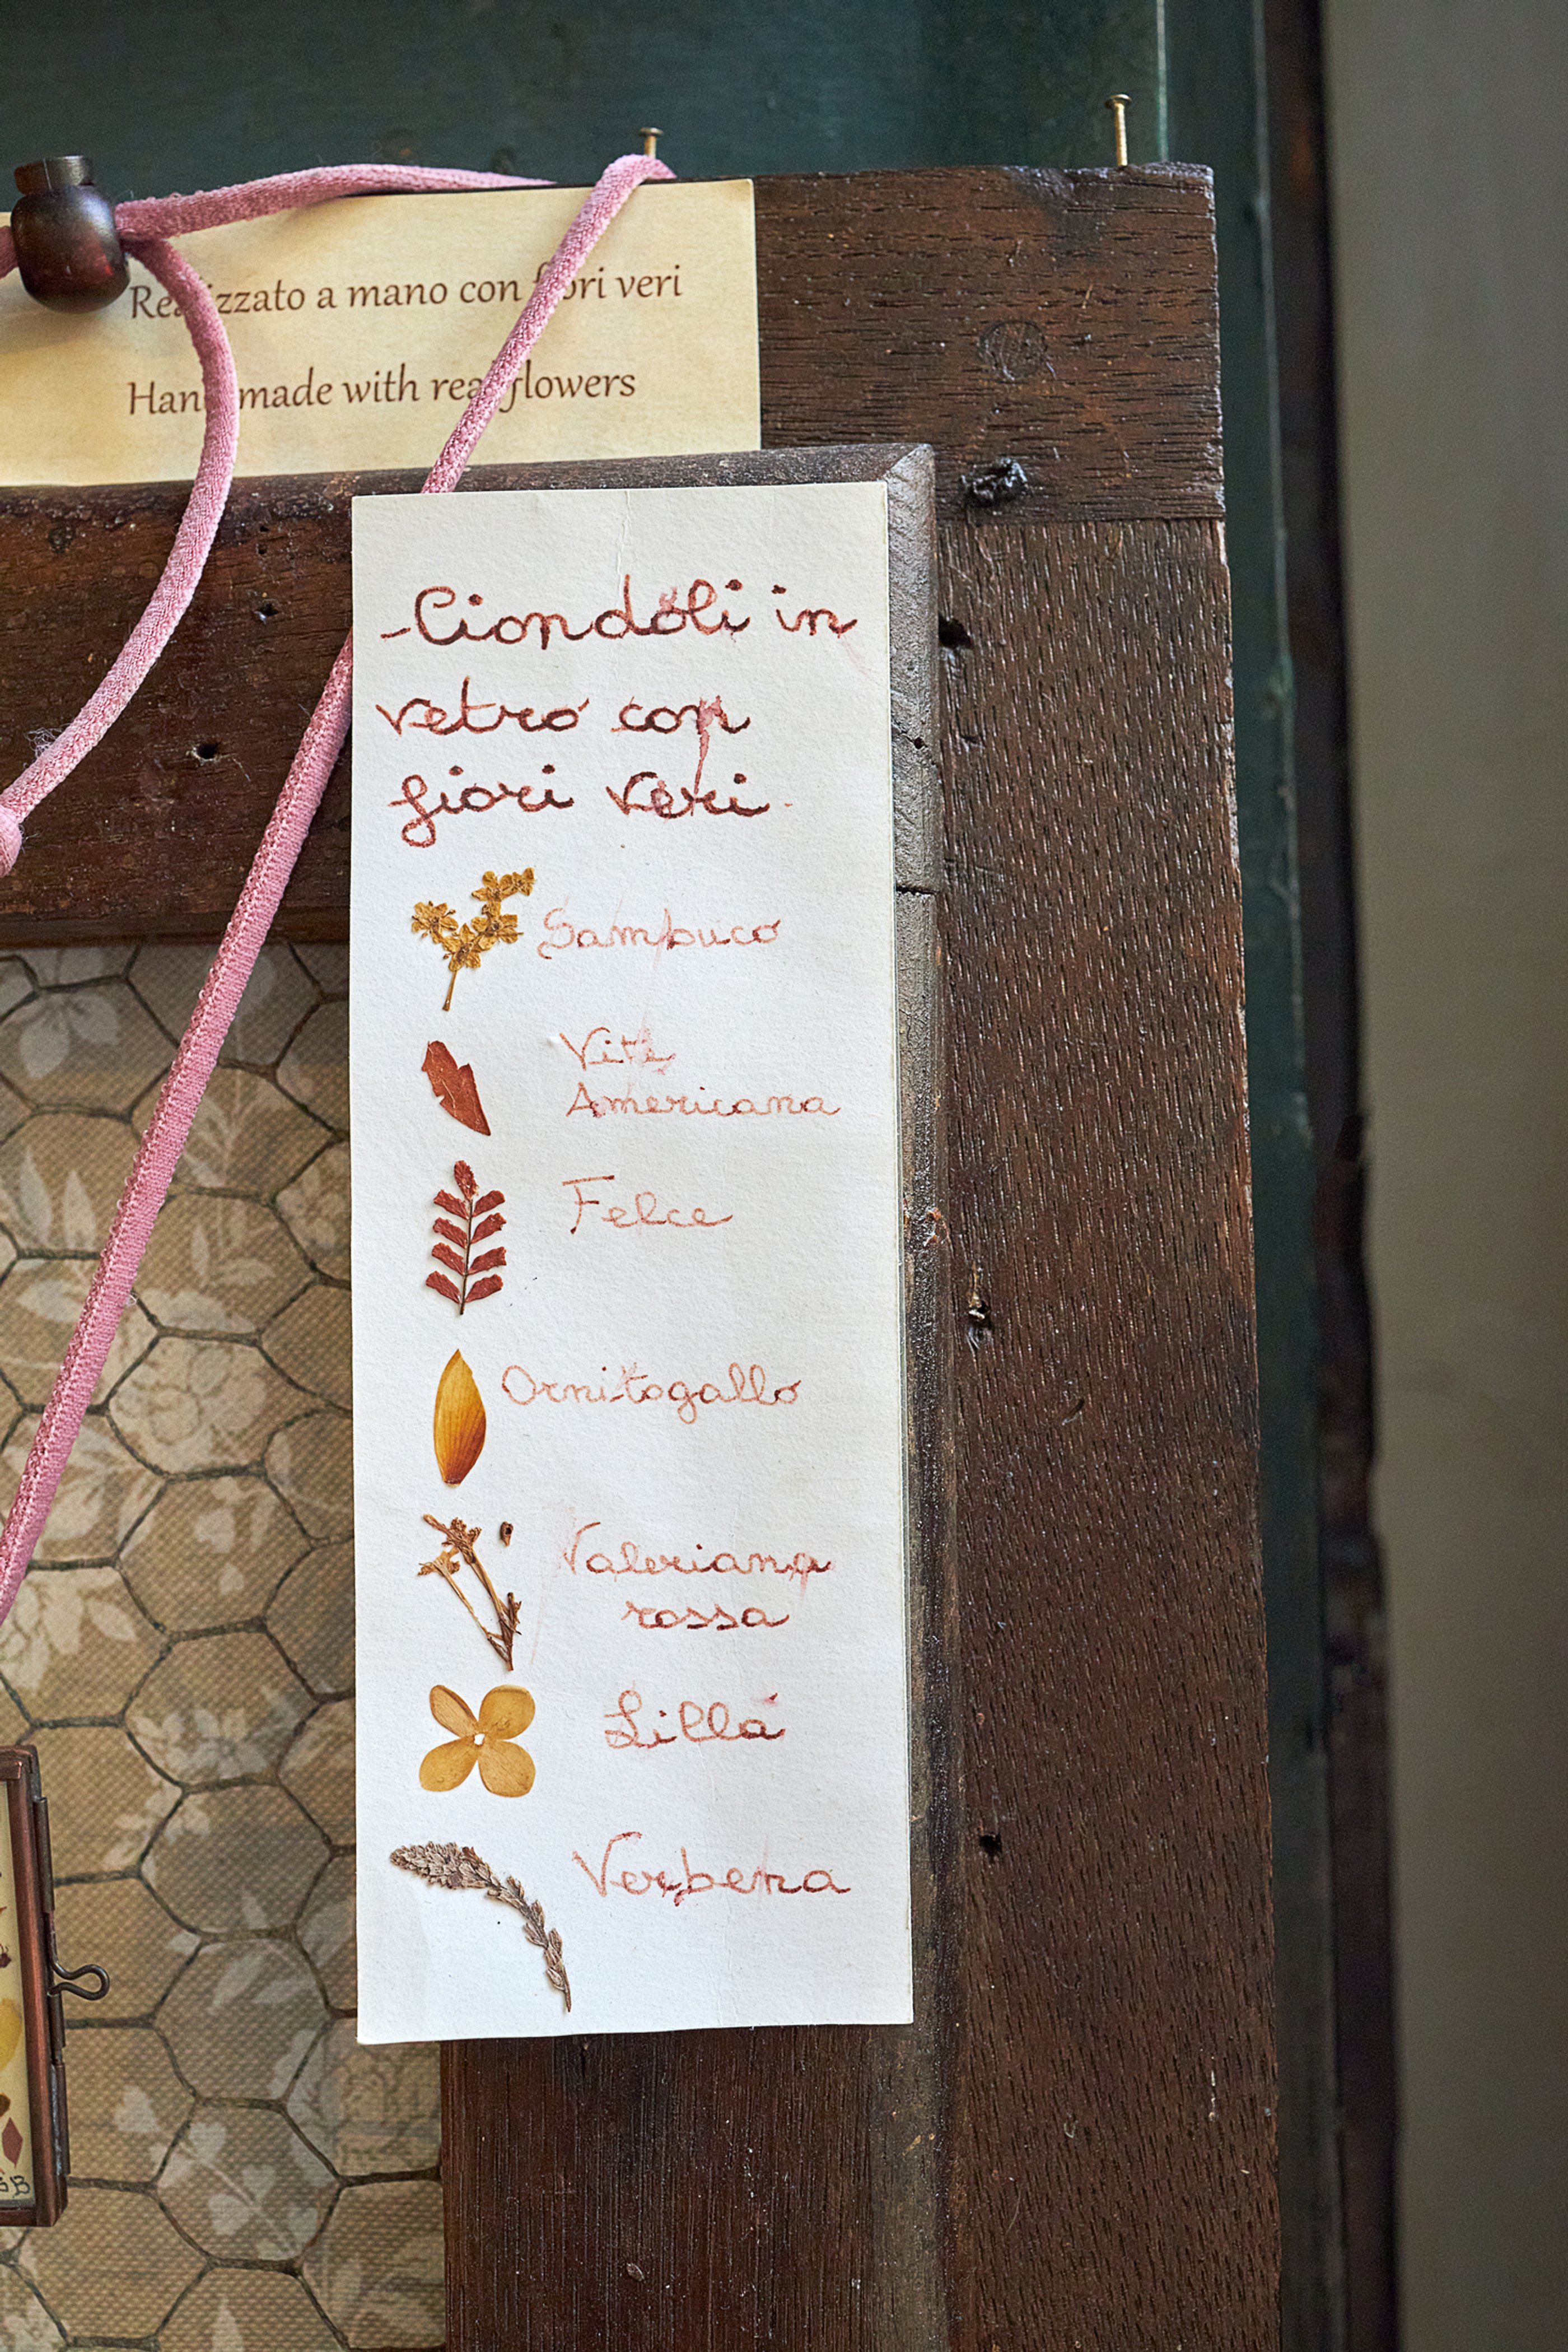 Realizzato a mano con fiori veri
Handmade with real flowers
-Ciondoli in
vetro con
fiori veri-
Sambuco
Vite
Americana
Felce
Ornitogallo
Valeriana
rossa
Lillá
Verbena